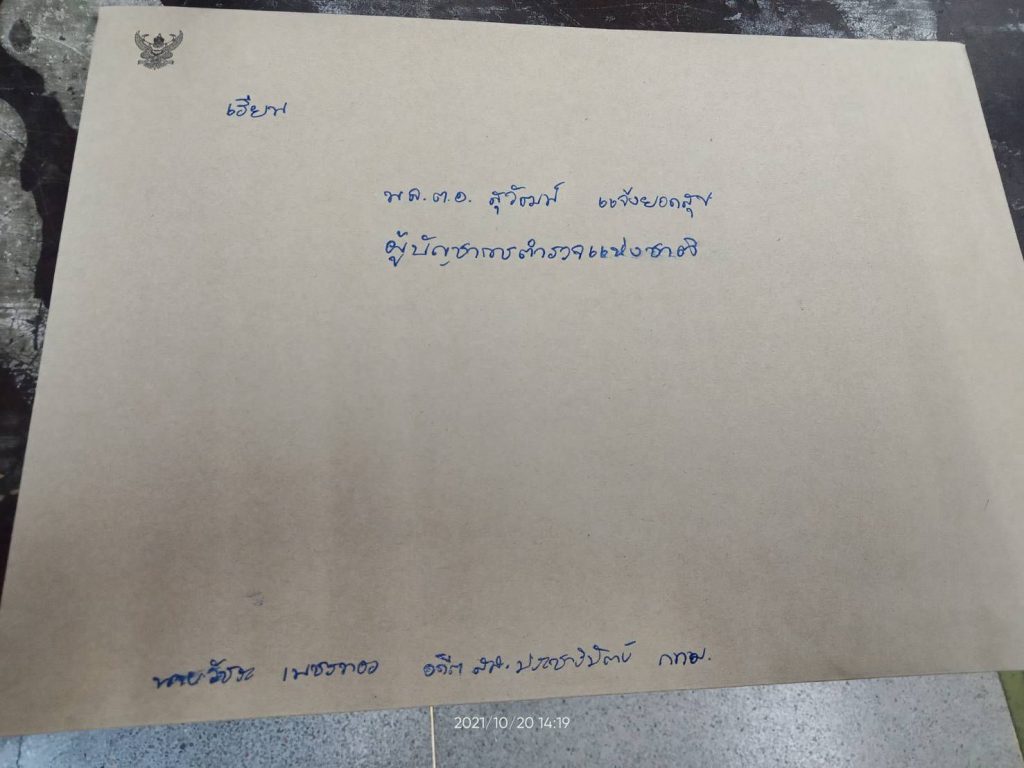 เรียน
พล.ต.อ. สุวัฒน์ แจ้งยอดสุข
ผู้บัญชาการตำรวจแห่งชาติ
นายวัชระ เพชรทอง อดีต สส. ประชาธิปัตย์ กทม.
2021/10/20 14:19